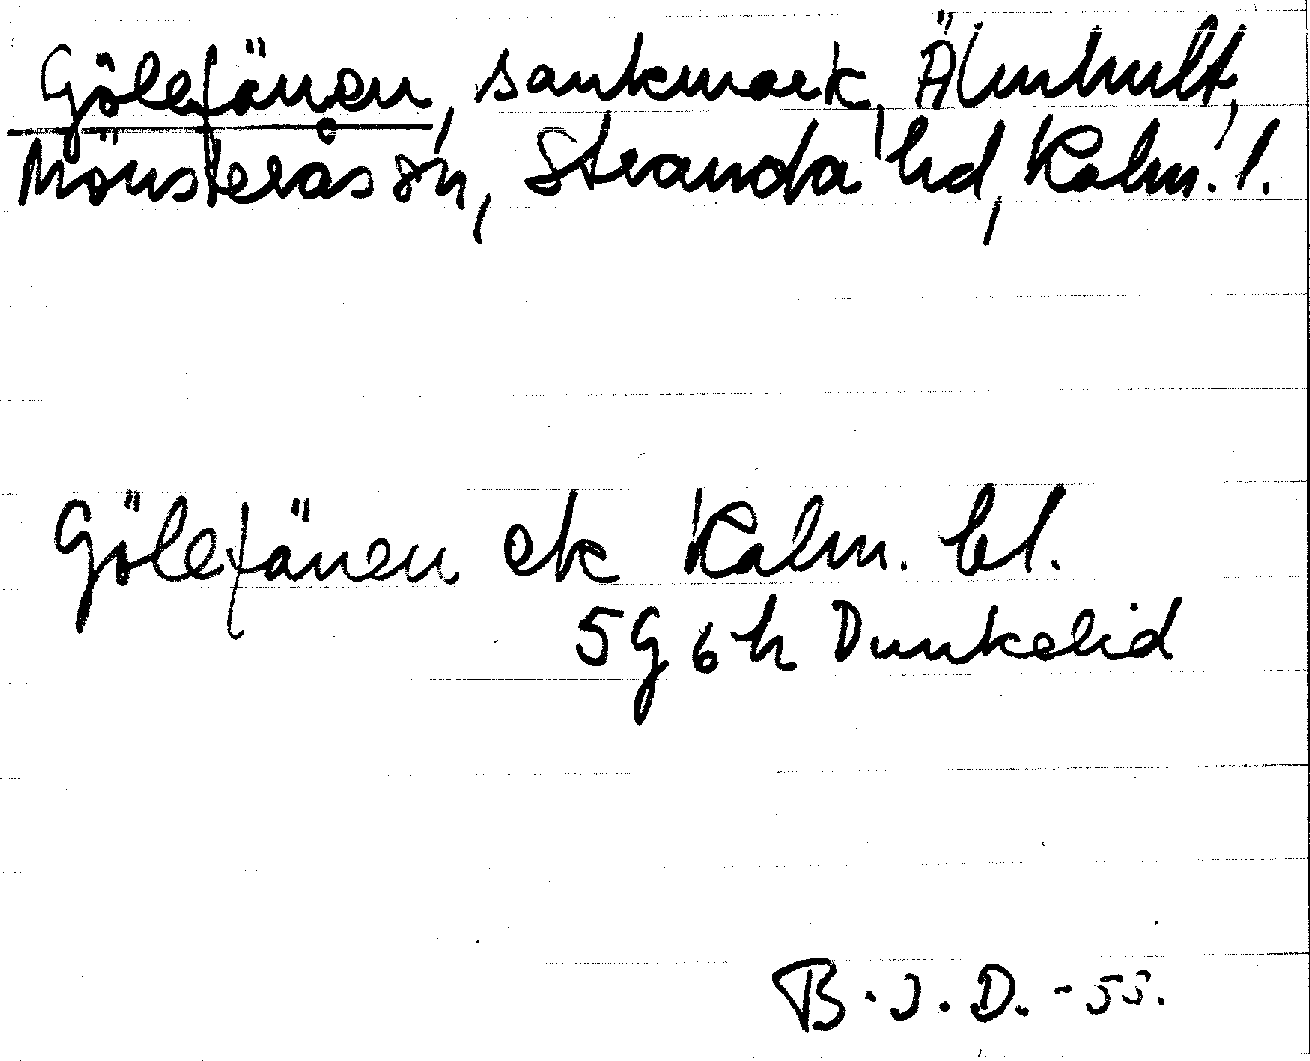 Gölefänen, sankmark, Älmhult,
Mönsterås sn, Stranda hd, Kalm. l.
Gölefänen ek Kalm. bl.
5G6h Dunkelid
B.J.D. -55.